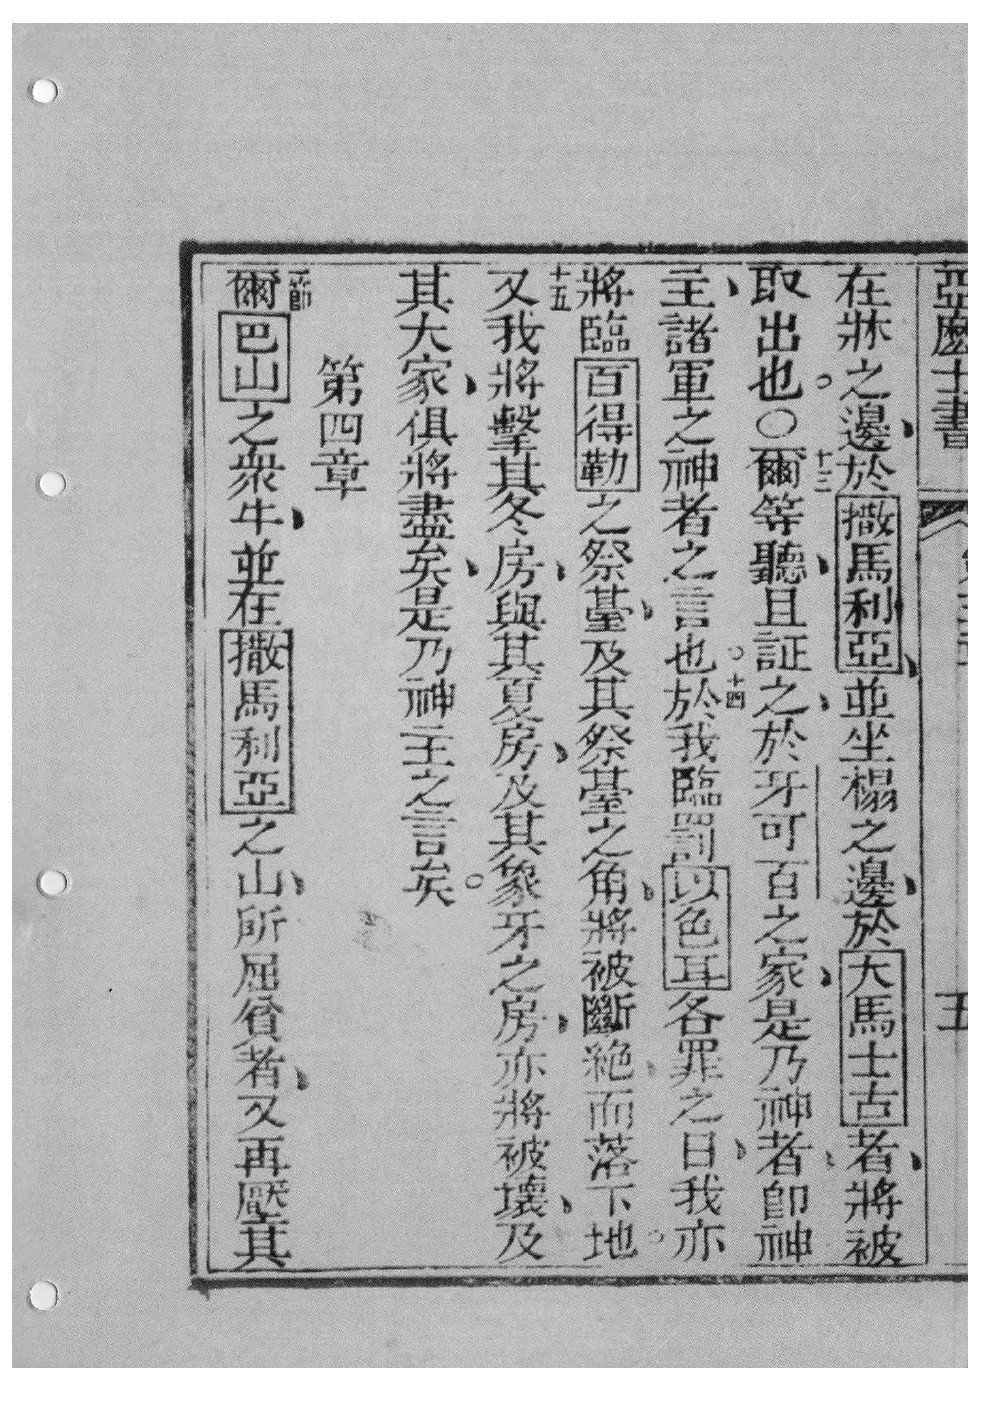 亞麽士書 五
在牀之邊、於撒馬利亞、並坐榻之邊、於大馬士古者、將被
取出也。〇十三爾等聽、且証之、於牙可百之家、是乃神者、卽神
主、諸軍之神者之言也。十四於我臨罰以色耳各罪之日、我亦
將臨百得勒之祭臺、及其祭臺之角、將被斷絕、而落下地。
十五又我將擊其冬房、與其夏房、及其象牙之房、亦將被壞、及
其大家、俱將盡矣、是乃神主之言矣。
第四章
一節爾巴山之衆牛、並在撒馬利亞之山、所屈貧者、又再壓其